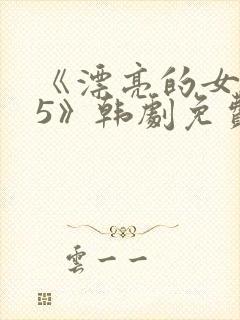 《漂亮的女
5》韩劇免費
雲一一